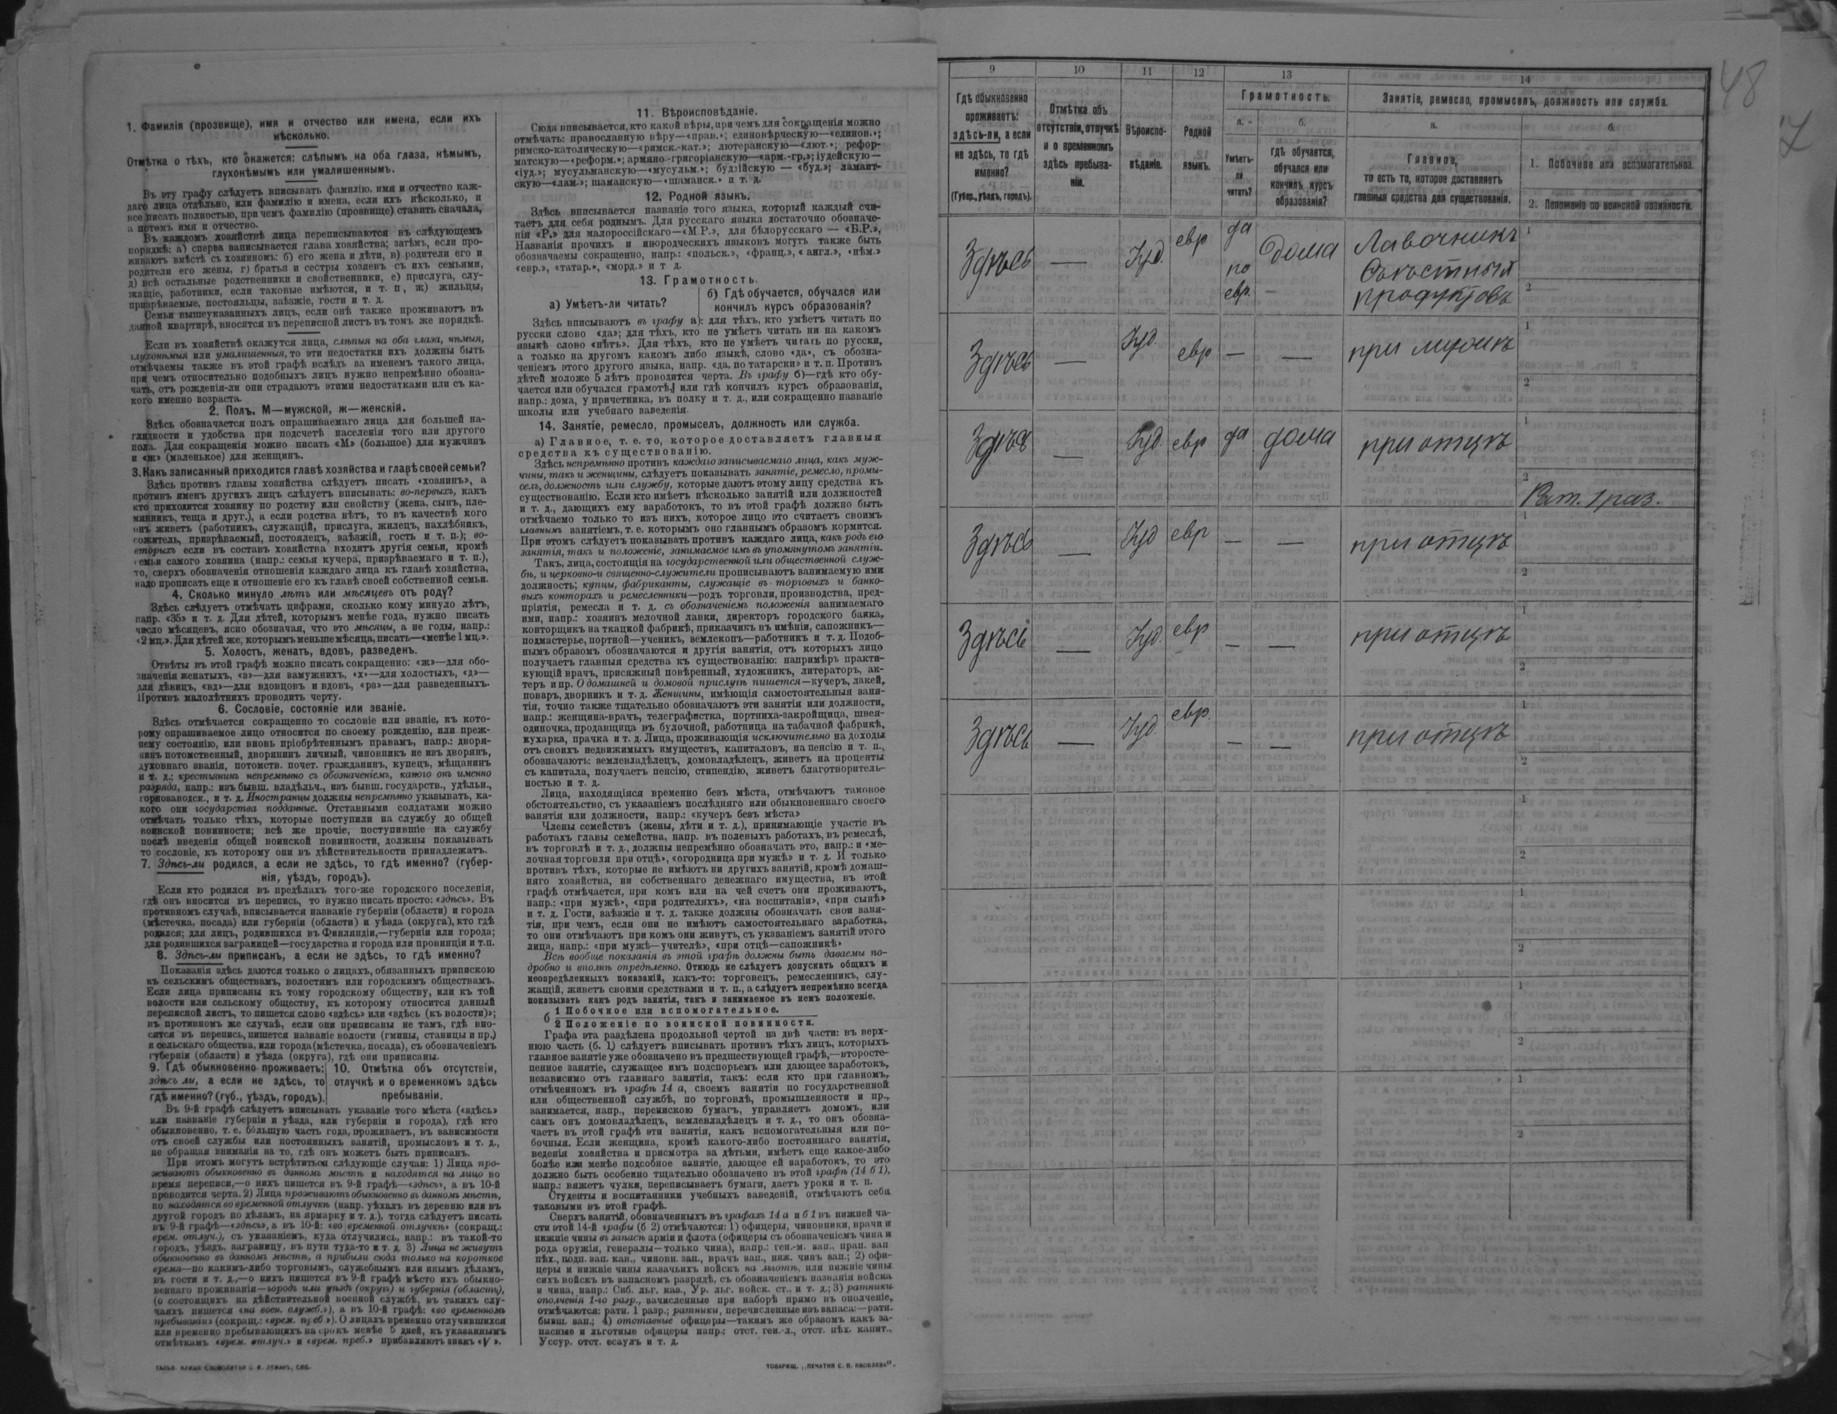 1. Фамилія (прозвище), имя и отчество или имена, если ихъ
нѣсколько.
Отмѣтка о тѣхъ, кто окажется: слѣпымъ на оба глаза, нѣмымъ,
глухонѣмымъ или умалишеннымъ.
Въ эту графу слѣдуетъ вписывать фамилію, имя и отчество каж-
даго лица отдѣльно, или фамилію и имена, если ихъ нѣсколько, и
все писать полностью, при чемъ фамилію (прозвище) ставить сначала,
а потомъ имя и отчество.
Въ каждомъ хозяйствѣ лица переписываются въ слѣдующемъ
порядкѣ: а) сперва записывается глава хозяйства; затѣмъ, если про-
живаютъ вмѣстѣ съ хозяиномъ: б) его жена и дѣти, в) родители его и
родители его жены, г) братья и сестры хозяевъ съ ихъ семьями,
д) всѣ остальные родственники и свойственники, е) прислуга, слу-
жащіе, работники, если таковые имѣются, и т. п., ж) жильцы,
призрѣваемые, постояльцы, заѣзжіе, гости и т. д.
Семьи вышеуказанныхъ лицъ, если онѣ также проживаютъ въ
данной квартирѣ, вносятся въ переписной листъ въ томъ же порядкѣ.
Если въ хозяйствѣ окажутся лица, слѣпыя на оба глаза, нѣмыя,
глухонѣмыя или умалишенныя, то эти недостатки ихъ должны быть
отмѣчаемы также въ этой графѣ вслѣдъ за именемъ такого лица,
при чемъ относительно подобныхъ лицъ нужно непремѣнно обозна-
чать, отъ рожденія-ли они страдаютъ этими недостатками или съ ка-
кого именно возраста.
2. Полъ. М—мужской, ж—женскій.
Здѣсь обозначается полъ опрашиваемаго лица для большей на-
глядности и удобства при подсчетѣ населенія того или другого
пола. Для сокращенія можно писать «М» (большое) для мужчинъ
и «ж» (маленькое) для женщинъ.
3. Какъ записанный приходится главѣ хозяйства и главѣ своей семьи?
Здѣсь противъ главы хозяйства слѣдуетъ писать «хозяинъ», а
противъ именъ другихъ лицъ слѣдуетъ вписывать: во-первыхъ, какъ
кто приходится хозяину по родству или свойству (жена, сынъ, пле-
мянникъ, теща и друг.), а если родства нѣтъ, то въ качествѣ кого
онъ живетъ (работникъ, служащій, прислуга, жилецъ, нахлѣбникъ,
сожитель, призрѣваемый, постоялецъ, заѣзжій, гость и т. п.); во-
вторыхъ если въ составъ хозяйства входятъ другія семьи, кромѣ
семьи самого хозяина (напр.: семья кучера, призрѣваемаго и т. п.),
то, сверхъ обозначенія отношенія каждаго лица къ главѣ хозяйства,
надо прописать еще и отношеніе его къ главѣ своей собственной семьи.
4. Сколько минуло лѣтъ или мѣсяцевъ отъ роду?
Здѣсь слѣдуетъ отмѣчать цифрами, сколько кому минуло лѣтъ,
напр. «35» и т. д. Для дѣтей, которымъ менѣе года, нужно писать
число мѣсяцевъ, ясно обозначая, что это мѣсяцы, а не годы, напр.:
«2 мц.». Для дѣтей же, которымъ меньше мѣсяца, писать—«менѣе 1 мц.».
5. Холостъ, женатъ, вдовъ, разведенъ.
Отвѣты въ этой графѣ можно писать сокращенно: «ж»—для обо-
значенія женатыхъ, «з»—для замужнихъ, «х»—для холостыхъ, «д»—
для дѣвицъ, «вд»—для вдовцовъ и вдовъ, «рз»—для разведенныхъ.
Противъ малолѣтнихъ проводить черту.
6. Сословіе, состояніе или званіе.
Здѣсь отмѣчается сокращенно то сословіе или званіе, къ кото-
рому опрашиваемое лицо относится по своему рожденію, или преж-
нему состоянію, или вновь пріобрѣтеннымъ правамъ, напр.: дворя-
нинъ потомственный, дворянинъ личный, чиновникъ не изъ дворянъ,
духовнаго званія, потомств. почет. гражданинъ, купецъ, мѣщанинъ
и т. д.; крестьянинъ непремѣнно съ обозначеніемъ, какого онъ именно
разряда, напр.: изъ бывш. владѣльч., изъ бывш. государств., удѣльн.,
горнозаводск., и т. д. Иностранцы должны непремѣнно указывать, ка-
кого они государства подданные. Отставными солдатами можно
отмѣчать только тѣхъ, которые поступили на службу до общей
воинской повинности; всѣ же прочіе, поступившіе на службу
послѣ введенія общей воинской повинности, должны показывать
то сословіе, къ которому они въ дѣйствительности принадлежатъ.
7. Здѣсь-ли родился, а если не здѣсь, то гдѣ именно? (губер-
нія, уѣздъ, городъ).
Если кто родился въ предѣлахъ того-же городского поселенія,
гдѣ онъ вносится въ перепись, то нужно писать просто: «здѣсь». Въ
противномъ случаѣ, вписывается названіе губерніи (области) и города
(мѣстечка, посада) или губерніи (области) и уѣзда (округа), кто гдѣ
родился; для лицъ, родившихся въ Финляндіи,—губерніи или города;
для родившихся заграницей—государства и города или провинціи и т.п.
8. Здѣсь-ли приписанъ, а если не здѣсь, то гдѣ именно?
Показанія здѣсь даются только о лицахъ, обязанныхъ припискою
къ сельскимъ обществамъ, волостямъ или городскимъ обществамъ.
Если лица приписаны къ тому городскому обществу, или къ той
волости или сельскому обществу, къ которому относится данный
переписной листъ, то пишется слово «здѣсь» или «здѣсь (къ волости)»;
въ противномъ же случаѣ, если они приписаны не тамъ, гдѣ вно-
сятся въ перепись, пишется названіе волости (гмины, станицы и пр.)
и сельскаго общества, или города (мѣстечка, посада), съ обозначеніемъ
губерніи (области) и уѣзда (округа), гдѣ они приписаны.
9. Гдѣ обыкновенно проживаетъ:
здѣсь ли, а если не здѣсь, то
гдѣ именно? (губ., уѣздъ, городъ).
10. Отмѣтка объ отсутствіи,
отлучкѣ и о временномъ здѣсь
пребываніи.
Въ 9-й графѣ слѣдуетъ вписывать указаніе того мѣста («здѣсь»
или названіе губерніи и уѣзда, или губерніи и города), гдѣ кто
обыкновенно, т. е. большую часть года, проживаетъ, въ зависимости
отъ своей службы или постоянныхъ занятій, промысловъ и т. д.,
не обращая вниманія на то, гдѣ онъ можетъ быть приписанъ.
При этомъ могутъ встрѣтиться слѣдующіе случаи: 1) Лица про-
живаютъ обыкновенно въ данномъ мѣстѣ и находятся на лицо во
время переписи,—о нихъ пишется въ 9-й графѣ—«здѣсь», а въ 10-й
проводится черта. 2) Лица проживаютъ обыкновенно въ данномъ мѣстѣ,
но находятся во временной отлучкѣ (напр. уѣхалъ въ деревню или въ
другой городъ по дѣламъ, на ярмарку и т. д.), тогда слѣдуетъ писать
въ 9-й графѣ—«здѣсь», а въ 10-й: «во временной отлучкѣ» (сокращ.:
врем. отлуч.), съ указаніемъ, куда отлучились, напр.: въ такой-то
городъ, уѣздъ, заграницу, въ пути туда-то и т. д. 3) Лица не живутъ
обыкновенно въ данномъ мѣстѣ, а прибыли сюда только на короткое
время—по какимъ-либо торговымъ, служебнымъ или инымъ дѣламъ,
въ гости и т. д.,—о нихъ пишется въ 9-й графѣ мѣсто ихъ обыкно-
веннаго проживанія—городъ или уѣздъ (округъ) и губернія (область),
(о состоящихъ на дѣйствительной военной службѣ, въ такихъ слу-
чаяхъ пишется «на воен. службѣ»), а въ 10-й графѣ: «во временномъ
пребываніи» (сокращ.: «врем. преб»). О лицахъ временно отлучившихся
или временно пребывающихъ на срокъ менѣе 5 дней, къ указаннымъ
отмѣткамъ «врем. отлуч.» и «врем. преб.» прибавляютъ знакъ «V».
11. Вѣроисповѣданіе.
Сюда вписывается, кто какой вѣры, при чемъ для сокращенія можно
отмѣчать: православную вѣру—«прав.»; единовѣрческую—«единов.»;
римско-католическую—«римск.-кат.»; лютеранскую—«лют.»; рефор-
матскую—«реформ.»; армяно-григоріанскую—«арм.-гр.»; іудейскую—
«іуд.»; мусульманскую—«мусульм.»; буддійскую — «буд.»; ламаит-
скую—«лам.»; шаманскую—«шаманск.» и т. д.
12. Родной языкъ.
Здѣсь вписывается названіе того языка, который каждый счи-
таетъ для себя роднымъ. Для русскаго языка достаточно обозначе-
нія «Р.» для малороссійскаго—«М.Р.», для бѣлорусскаго — «Б.Р.»,
Названія прочихъ и инородческихъ языковъ могутъ также быть
обозначаемы сокращенно, напр.: «польск.», «франц.», «англ.», «нѣм.»
«евр.», «татар.», «морд.» и т д.
13. Грамотность.
а) Умѣетъ-ли читать?
б) Гдѣ обучается, обучался или
кончилъ курсъ образованія?
Здѣсь вписываютъ въ графу а): для тѣхъ, кто умѣетъ читать по
русски слово «да»; для тѣхъ, кто не умѣетъ читать ни на какомъ
языкѣ слово «нѣтъ». Для тѣхъ, кто не умѣетъ читать по русски,
а только на другомъ какомъ либо языкѣ, слово «да», съ обозна-
ченіемъ этого другого языка, напр. «да, по татарски» и т. п. Противъ
дѣтей моложе 5 лѣтъ проводится черта. Въ графу б)—гдѣ кто обу-
чается или обучался грамотѣ, или гдѣ кончилъ курсъ образованія,
напр.: дома, у причетника, въ полку и т. д., или сокращенно названіе
школы или учебнаго заведенія.
14. Занятіе, ремесло, промыселъ, должность или служба.
а) Главное, т. е. то, которое доставляетъ главныя
средства къ существованію.
Здѣсь непремѣнно противъ каждаго записываемаго лица, какъ муж-
чины, такъ и женщины, слѣдуетъ показывать занятіе, ремесло, промы-
селъ, должность или службу, которые даютъ этому лицу средства къ
существованію. Если кто имѣетъ нѣсколько занятій или должностей
и т. д., дающихъ ему заработокъ, то въ этой графѣ должно быть
отмѣчаемо только то изъ нихъ, которое лицо это считаетъ своимъ
главнымъ занятіемъ, т. е. которымъ оно главнымъ образомъ кормится.
При этомъ слѣдуетъ показывать противъ каждаго лица, какъ родъ его
занятія, такъ и положеніе, занимаемое имъ въ упомянутомъ занятіи.
Такъ, лица, состоящія на государственной или общественной служ-
бѣ, и церковно-и священно-служители прописываютъ занимаемую ими
должность; купцы, фабриканты, служащіе въ торговыхъ и банко-
выхъ конторахъ и ремесленники—родъ торговли, производства, пред-
пріятія, ремесла и т. д. съ обозначеніемъ положенія занимаемаго
ими, напр.: хозяинъ мелочной лавки, директоръ городского банка,
конторщикъ на ткацкой фабрикѣ, приказчикъ въ имѣніи, сапожникъ—
подмастерье, портной—ученикъ, землекопъ—работникъ и т. д. Подоб-
нымъ образомъ обозначаются и другія занятія, отъ которыхъ лицо
получаетъ главныя средства къ существованію: напримѣръ практи-
кующій врачъ, присяжный повѣренный, художникъ, литераторъ, ак-
теръ и пр. О домашней и домовой прислугѣ пишется—кучеръ, лакей,
поваръ, дворникъ и т. д. Женщины, имѣющія самостоятельныя заня-
тія, точно также тщательно обозначаютъ эти занятія или должности,
напр.: женщина-врачъ, телеграфистка, портниха-закройщица, швея-
одиночка, продавщица въ булочной, работница на табачной фабрикѣ,
кухарка, прачка и т. д. Лица, проживающія исключительно на доходы
отъ своихъ недвижимыхъ имуществъ, капиталовъ, на пенсію и т. п.,
обозначаютъ: землевладѣлецъ, домовладѣлецъ, живетъ на проценты
съ капитала, получаетъ пенсію, стипендію, живетъ благотворитель-
ностью и т. д.
Лица, находящіяся временно безъ мѣста, отмѣчаютъ таковое
обстоятельство, съ указаніемъ послѣдняго или обыкновеннаго своего
занятія или должности, напр.: «кучеръ безъ мѣста»
Члены семействъ (жены, дѣти и т. д.), принимающіе участіе въ
работахъ главы семейства, напр. въ полевыхъ работахъ, въ ремеслѣ,
въ торговлѣ и т. д., должны непремѣнно обозначать это, напр.: и «ме-
лочная торговля при отцѣ», «огородница при мужѣ» и т. д. И только
противъ тѣхъ, которые не имѣютъ ни другихъ занятій, кромѣ домаш-
няго хозяйства, ни собственнаго денежнаго имущества, въ этой
графѣ отмѣчается, при комъ или на чей счетъ они проживаютъ,
напр.: «при мужѣ», «при родителяхъ», «на воспитаніи», «при сынѣ»
и т. д. Гости, заѣзжіе и т. д. также должны обозначать свои заня-
тія, при чемъ, если они не имѣютъ самостоятельнаго заработка,
то они отмѣчаютъ при комъ они живутъ, съ указаніемъ занятій этого
лица, напр.: «при мужѣ—учителѣ», «при отцѣ—сапожникѣ»
Всѣ вообще показанія въ этой графѣ должны быть даваемы по-
дробно и вполнѣ опредѣленно. Отнюдь не слѣдуетъ допускать общихъ и
неопредѣленныхъ показаній, какъ-то: торговецъ, ремесленникъ, слу-
жащій, живетъ своими средствами и т. п., а слѣдуетъ непремѣнно всегда
показывать какъ родъ занятія, такъ и занимаемое въ немъ положеніе.
б 1 Побочное или вспомогательное.
2 Положеніе по воинской повинности.
Графа эта раздѣлена продольной чертой на двѣ части: въ верх-
нюю часть (б. 1) слѣдуетъ вписывать противъ тѣхъ лицъ, которыхъ
главное занятіе уже обозначено въ предшествующей графѣ,—второсте-
пенное занятіе, служащее имъ подспорьемъ или дающее заработокъ,
независимо отъ главнаго занятія, такъ: если кто при главномъ,
отмѣченномъ въ графѣ 14 а, своемъ занятіи по государственной
или общественной службѣ, по торговлѣ, промышленности и пр.,
занимается, напр., перепискою бумагъ, управляетъ домомъ, или
самъ онъ домовладѣлецъ, землевладѣлецъ и т. д., то онъ обозна-
чаетъ въ этой графѣ эти занятія, какъ вспомогательныя или по-
бочныя. Если женщина, кромѣ какого-либо постояннаго занятія,
веденія хозяйства и присмотра за дѣтьми, имѣетъ еще какое-либо
болѣе или менѣе подсобное занятіе, дающее ей заработокъ, то это
должно быть особенно тщательно обозначено въ этой графѣ (14 б 1),
напр.: вяжетъ чулки, переписываетъ бумаги, даетъ уроки и т. п.
Студенты и воспитанники учебныхъ заведеній, отмѣчаютъ себя
таковыми въ этой графѣ.
Сверхъ занятій, обозначенныхъ въ графахъ 14 а и б 1 въ нижней ча-
сти этой 14-й графы (б 2) отмѣчаются: 1) офицеры, чиновники, врачи и
нижніе чины въ запасѣ арміи и флота (офицеры съ обозначеніемъ чина и
рода оружія, генералы—только чина), напр.: ген.-м. зап., прап. зап
пѣх., подп. зап. кав., чиновн. зап., врачъ зап., ниж. чинъ зап.; 2) офи-
церы и нижніе чины казачьихъ войскъ на льготѣ, или нижніе чины
сихъ войскъ въ запасномъ разрядѣ, съ обозначеніемъ названія войска
и чина, напр.: Сиб. льг. каз., Ур. льг. войск. ст., и т. д.; 3) ратники
ополченія 1-го разр., зачисленные при наборѣ прямо въ ополченіе,
отмѣчаются: ратн. 1 разр.; ратники, перечисленные изъ запаса:—ратн.
бывш. зап.; 4) отставные офицеры—такимъ же образомъ какъ за-
пасные и льготные офицеры напр.: отст. ген.-л., отст. пѣх. капит.,
Уссур. отст. есаулъ и т. д.
ТОВАРИЩ. „ПЕЧАТНЯ С. П. ЯКОВЛЕВА“.
48
7
9 10 11 12 13 14
Гдѣ обыкновенно
проживаетъ:
здѣсь-ли, а если
не здѣсь, то гдѣ
именно?
(Губер., уѣздъ, городъ).
Отмѣтка объ
отсутствіи, отлучкѣ
и о временномъ
здѣсь пребыва-
ніи.
Вѣроиспо-
вѣданіе.
Родной
языкъ.
Грамотность.
а.
Умѣетъ-
ли
читать?
б.
гдѣ обучается,
обучался или
кончилъ курсъ
образованія?
Занятіе, ремесло, промыселъ, должность или служба.
а.
Главное,
то есть то, которое доставляетъ
главныя средства для существованія.
б.
1. Побочное или вспомогательное.
2. Положеніе по воинской повинности.
Здѣсь — Іуд. евр да дома Лавочникъ 1
по Съѣстныя
евр. — продуктовъ 2
Здѣсь — Іуд евр — — при мужѣ 1
2
Здѣсь — Іуд евр да дома при отцѣ 1
2
Рат. 1 раз.
Здѣсь — Іуд евр — — при отцѣ 1
2
Здѣсь — Іуд евр — — при отцѣ 1
2
Здѣсь — Іуд евр. — — при отцѣ 1
2
1
2
1
2
1
2
1
2